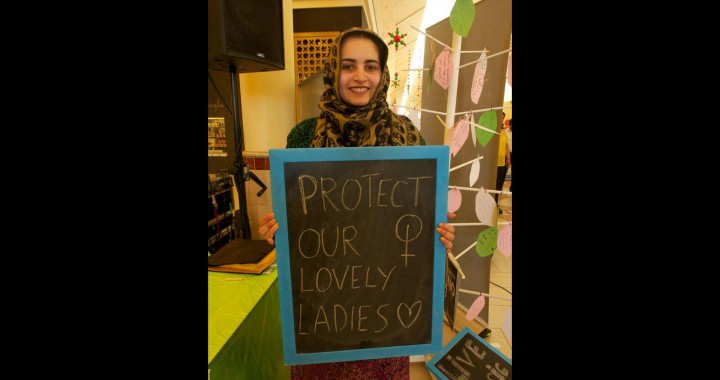 PROTECT
OUR ♀
LOVELY
LADIES ♡
LIVE